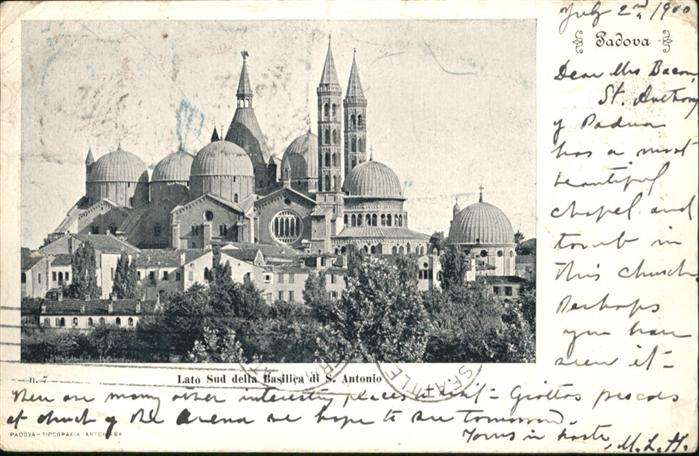 July 2nd 1900
Padova
Dear Mrs Bacon,
St. Anthony
of Padua
has a most
beautiful
chapel and
tomb in
this church
Perhaps
you have
seen it -
n. 7
Lato Sud della Basilica di S. Antonio
SEATTLE
There are many other interesting places to visit - Giottos frescoes
at church of the Arena we hope to see tomorrow.
PADOVA - TIPOGRAFIA ANTONIANA
Yours in haste, M. L. H.